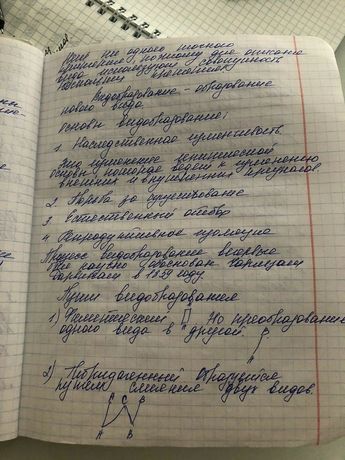 ни одного точного
поэтому для описание
вида используют совокупность
Видообразование - образование
нового вида.
Основы видообразование:
1. Наследственная изменчивость
Это изменение генетической
основы под ведёт к изменению
внешних и внутренних признаков.
2. Борьба за существование
3. Естественный отбор
4. Репродуктивное изоляция
Процесс видообразование впервые
был научно обоснован Чарльзом
Дарвином в 1859 году
Пути видообразования
1) Филетический Это преобразование
одного вида в другой.
2) Гибридогенный образуется
путём слияния двух видов.
C C B
A B